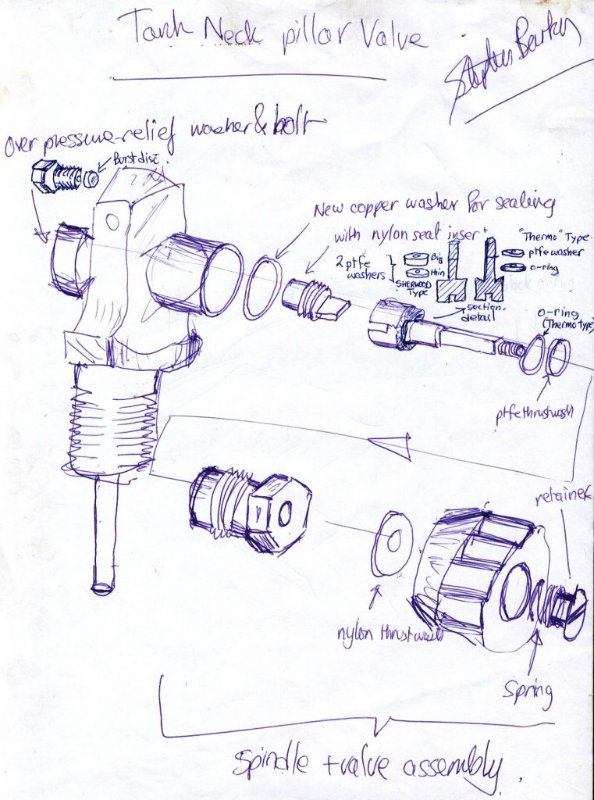 Tank Neck pillar Valve
Over pressure-relief washer & bolt
Burst disc
New copper washer for sealing
with nylon seat insert
2 ptfe
washers
Big
thin
SHERWOOD
TYPE
"Thermo" Type
ptfe washer
o-ring
section
detail
o-ring
(Thermo Type)
ptfe thrustwash
retainer
nylon thrustwash
Spring
Spindle + valve assembly.